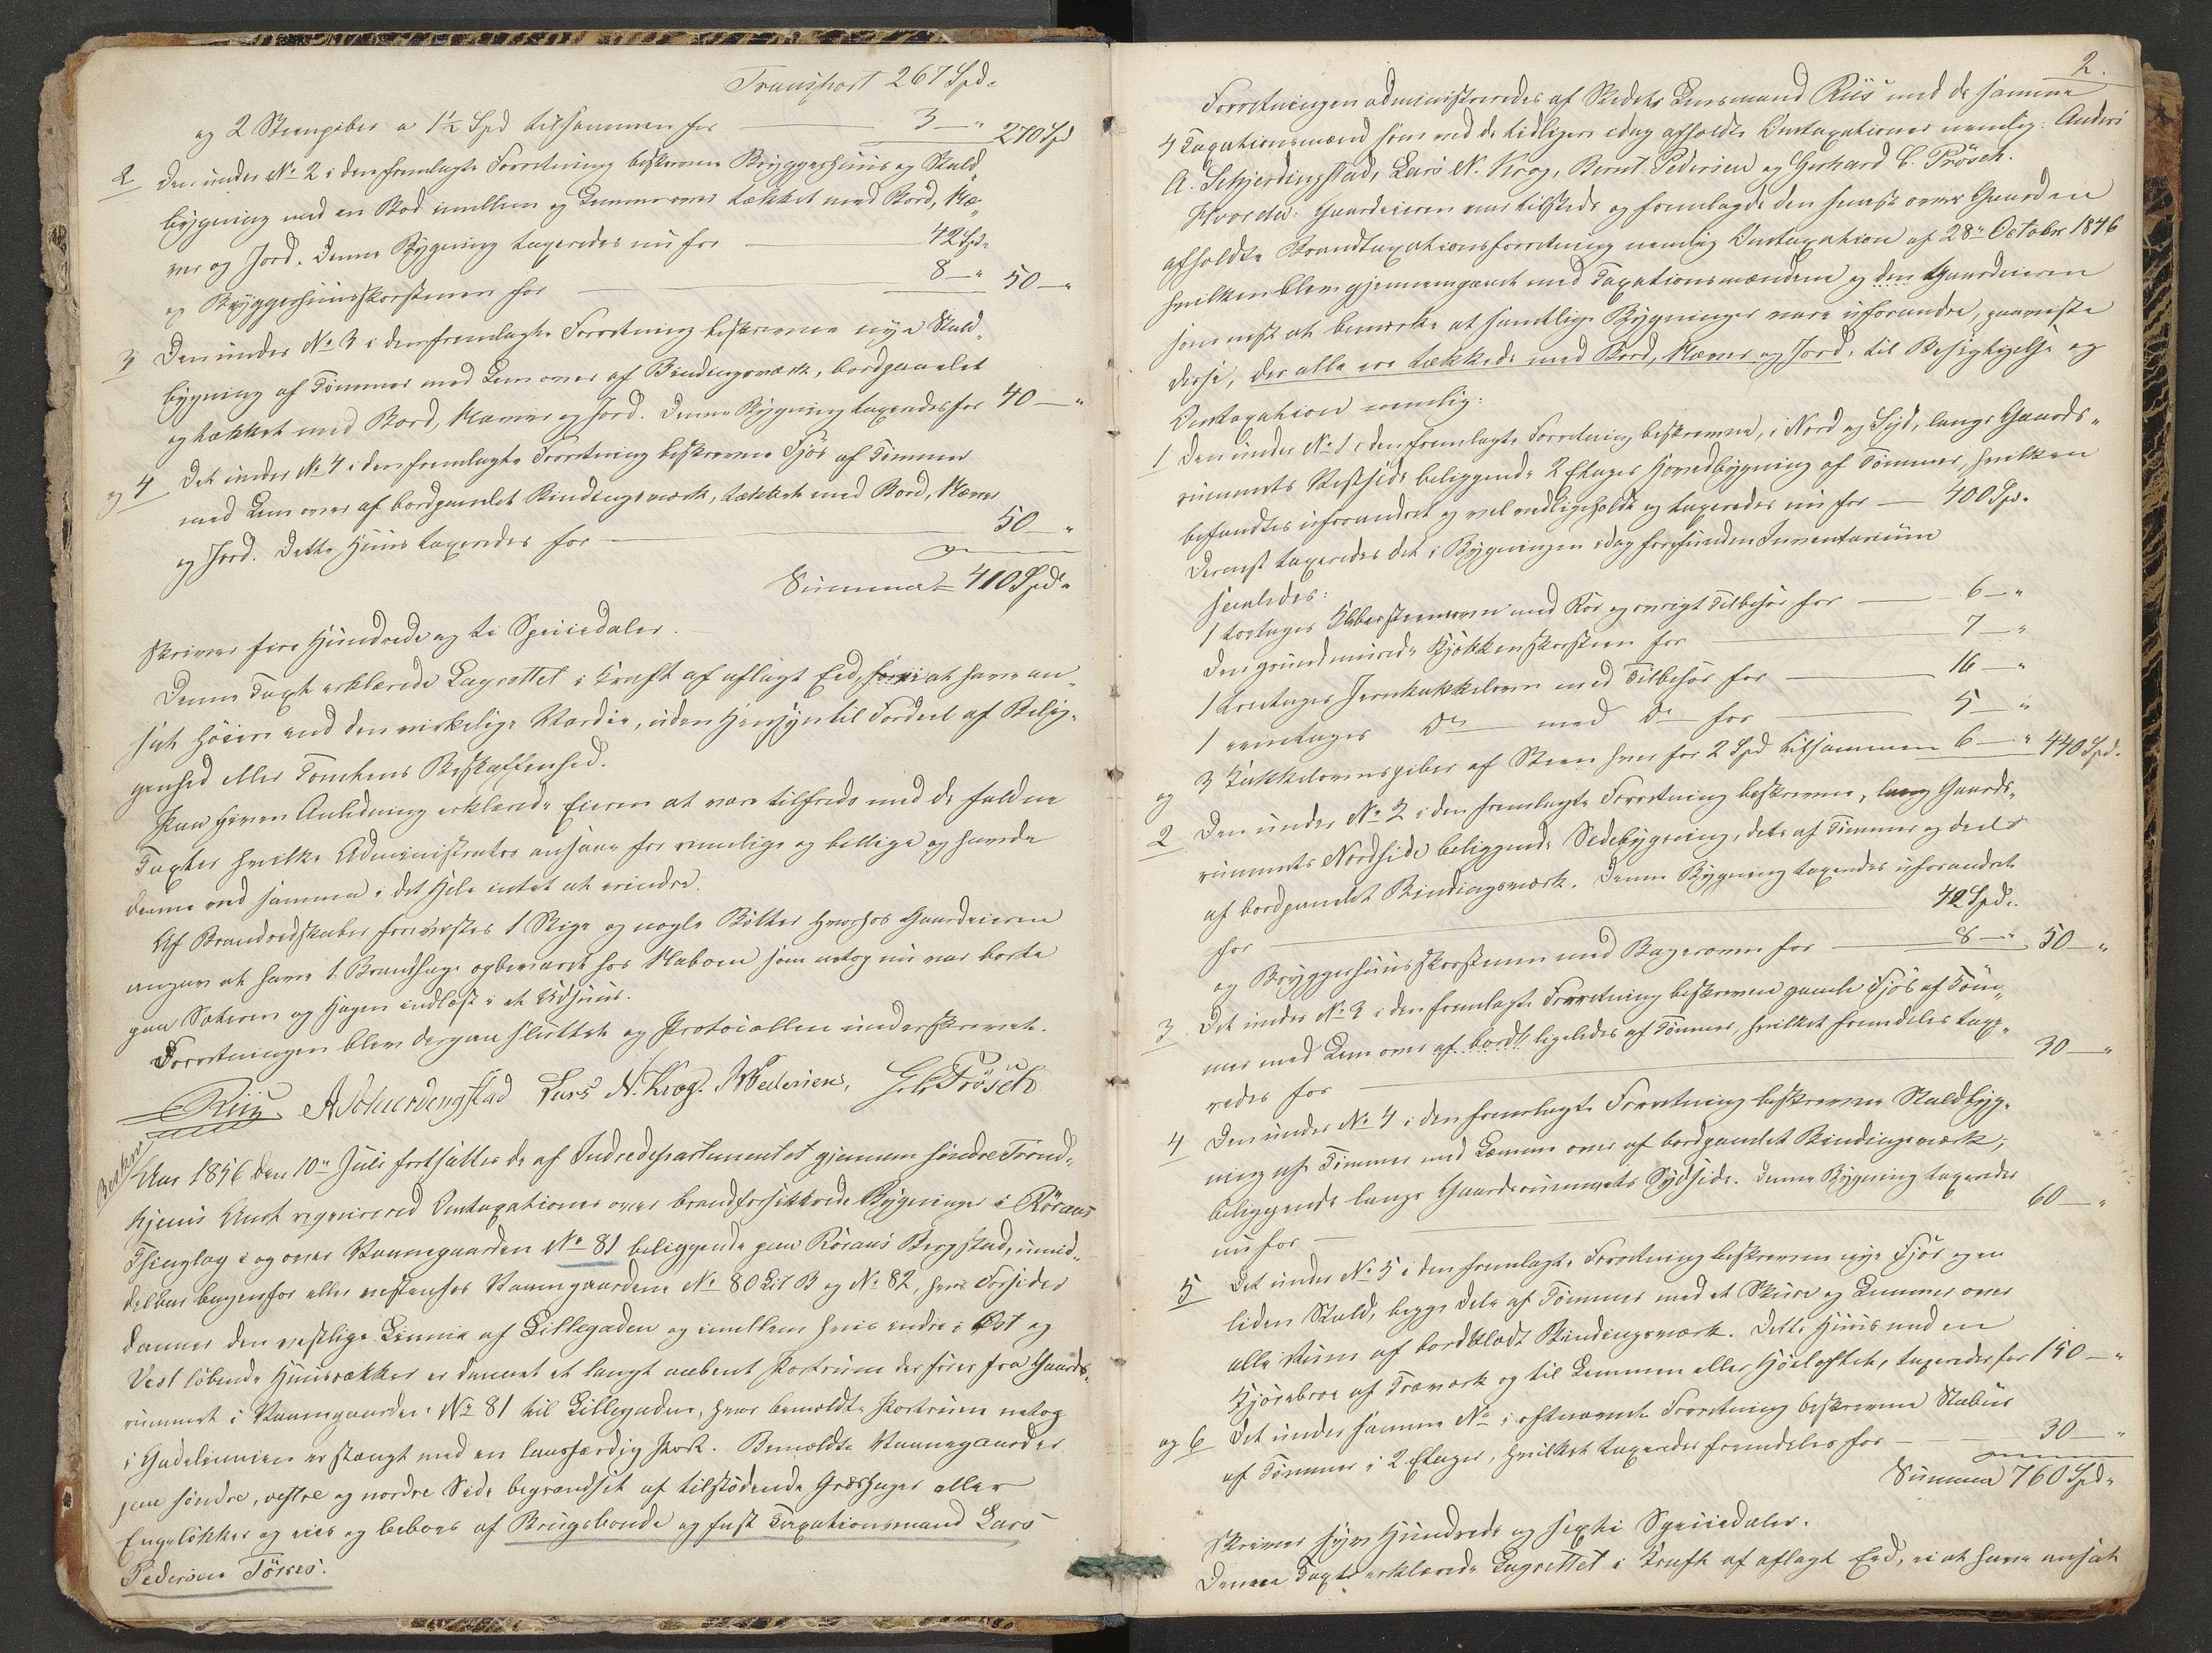 Transport 267 Spd.
og 2 Steenpiber a 1½ Spd tilsammen for 3 — " 270 Spd
2 Den under No 2 i den fremlagte Forretning beskrevne Bryggerhuus og Stald-
bygning med en Bod imellem og Lemmer over tækket med Bord, Næ-
ver og Jord. Denne Bygning taxeredes nu for 42 Spd.
og Bryggerhuusskorstenen for 8 — " 50 — "
3 Den under No 3 i den fremlagte Forretning beskrevne nye Stald-
bygning af Tømmer med Lem over af Bindingsværk, bordpanelet
og tækket med Bord, Næver og Jord. Denne Bygning taxeredes for 40 — "
og 4 Det under No 4 i den fremlagte Forretning beskrevne Fjøs af Tømmer
med Lem over af bordpanelet Bindingsværk, tækket med Bord, Næver
og Jord. Dette Huus taxeredes for 50 — "
Summa 410 Spd.
skriver fire Hundrede og ti Speciedaler.
Denne Taxt erklærede Lagrettet i Kraft af aflagt Eed, ei at have an-
sat høiere end den virkelige Værdie, uden Hensyn til Fordeel af Belig-
genhed eller Tomtens Beskaffenhed.
Paa given Anledning erklærede Eieren at være tilfreds med de faldne
Taxter hvilke Administrator ansaae for rimelige og billige og havde
denne ved samme i det Hele intet at erindre.
Af Brandredskaber forevistes 1 Stige og nogle Bøtter hvorhos Gaardeieren
angav at have 1 Brandhage opbevaret hos Naboen som netop nu var borte
paa Sæteren og Hagen indlaast i et Udhuus.
Forretningen blev derpaa sluttet og Protocollen underskrevet.
Riis A Schjerdingstad Lars N. Krog. B Pedersen, G. C. Prösch
Aar 1856 den 10de Juli fortsattes de af Indredepartementet gjennem søndre Trond-
hjems Amt reqvirered Omtaxationer over brandforsikkrede Bygninger i Røraas
Thinglag i og over Vaanegaarden No 81 beliggende paa Røraas Bergstad, umid-
delbar bagenfor eller vestenfor Vaanegaardene No 80 Lit B og No 82, hvis Forsider
danner den vestlige Linnie af Lillegaden og imellem hvis indre i Øst og
Vest løbende Huusrækker er dannet et langt aabent Portrum der fører fra Gaards-
rummet i Vaanegaarden No 81 til Lillegaden, hvor bemeldte Portrum netop
i Gadelinnien er stængt med en laasfærdig Port. Bemeldte Vaanegaard er
paa søndre, vestre og nordre Side begrændset af tilstødende Græshager eller
Engeløkker og eies og beboes af Brugsbonde og fast Taxationsmand Lars
Pedersen Törres.
2.
Forretningen administreredes af Stedets Lensmand Riis med de samme
4 Taxationsmænd som ved de tidligere idag afholdte Omtaxationer nemlig: Anders
A. Schjerdingstad, Lars N. Krog, Bernt Pedersen og Gerhard C. Prösch.
Hvorda: Gaardeieren var tilstede og fremlagde den seneste over Gaarden
afholdte Brandtaxationsforretning nemlig Omtaxation af 28de October 1846
hvilken blev gjennemgaaet med Taxationsmændene og den Gaardeieren
som næst at bemærke at samtlige Bygninger vare uforandre, paaviste
disse, der alle ere tækkede med Bord, Næver og Jord, til Besigtigelse og
Omtaxation nemlig:
1 Den under No 1 i den fremlagte Forretning beskrevne, i Nord og Syd, langs Gaards-
rummets Vestside beliggende 2 Etages Hovedbygning af Tømmer, hvilken
befandtes uforandret og vel vedligeholdt og taxeredes nu for — 400 Spd.
Dernæst taxeredes det i Bygningen idag forefunden Inventarium
saaledes:
1 toetages Klebersteensovn med Rør og øvrigt Tilbehør for 6 — "
Den grundmurede Kjøkkenskorsteen for 7 — "
1 treetages Jernkakkelovn med Tilbehør for 16 — "
1 eenetages Do — med Do for 5 — "
og 3 Kakkelovnspiber af Steen hver for 2 Spd tilsammen 6 — " 440 Spd.
2 Den under No 2 i den fremlagte Forretning beskrevne, lang Gaards-
rummets Nordside beliggende Sidebygning, dels af Tømmer og deels
af bordpanelet Bindingsværk. Denne Bygning taxeredes uforandret
for 42 Spd.
og Bryggerhuusskorstenen med Bagerovn for 8 — " 50 — "
3 Det under No 3 i den fremlagte Forretning beskrevne gamle Fjøs af Tøm-
mer med Lem over af bordk ligeledes af Tømmer, hvilket fremdeles taxe-
redes for 30 — "
4 Den under No 4 i den fremlagte Forretning beskrevne Staldbyg-
ning af Tømmer med Lemme over af bordpanelet Bindingsværk,
beliggende langs Gaardsrummets Sydside. Denne Bygning taxeredes
nu for 60 — "
5 Det under No 5 i den fremlagte Forretning beskrevne nye Fjøs og en
liden Stald, begge dele af Tømmer med et Skuur og Lemmer over
alle Rum af bordklædt Bindingsværk. Dette Huus med en
Kjørebroe af Træværk og til Lemmen eller Høeloftet, taxeredes for 150 — "
og 6 Det under samme No i oftnævnte Forretning beskrevne Stabur
af Tømmer i 2 Etager, hvilket taxeredes fremdeles for 30 — "
Summa 760 Spd.
skriver syv Hundrede og sexti Speciedaler.
Denne Taxt erklærede Lagrettet i Kraft af aflagt Eed, ei at have ansat